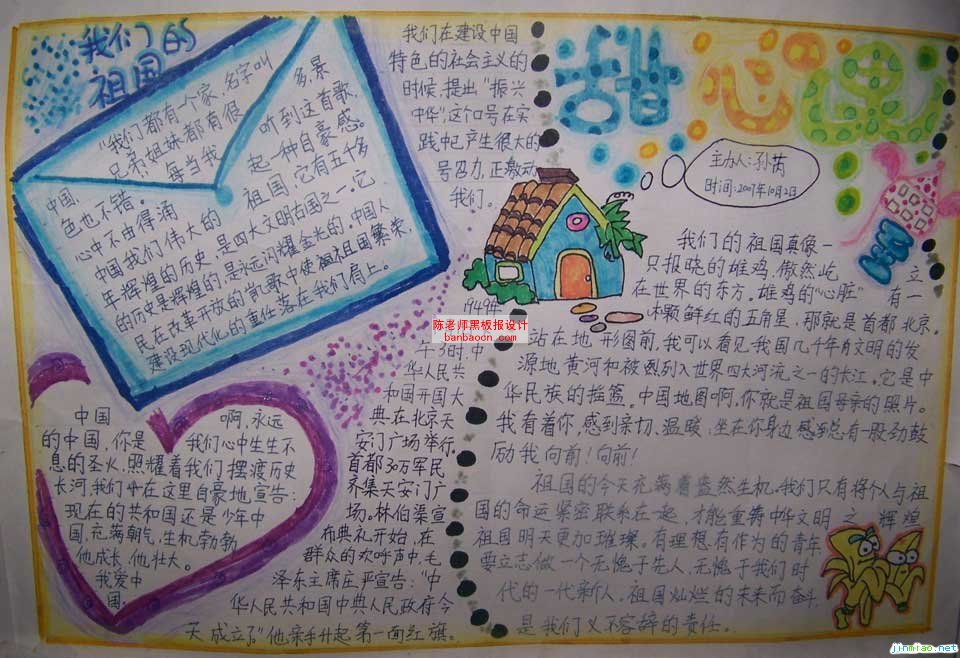 我们的
祖国
"我们都有一个家,名字叫
中国,
兄弟姐妹都有很
多,景
色也不错。
每当我
听到这首歌,
心中不由得涌
起一种自豪感。
中国我们伟大的
祖国,它有五千多
年辉煌的历史,是四大文明古国之一,它
的历史是辉煌的,是永远闪耀金光的。中国人
民在改革开放的凯歌中使祖国繁荣,
建设现代化的重任落在我们肩上。
我们在建设中国
特色的社会主义的
时候,提出"振兴
中华",这个口号在实
践中已产生很大的
号召力,正激动
我们。
甜心园
主办人:孙芮
时间:2007年10月2日
我们的祖国真像一
只报晓的雄鸡,傲然屹
立
在世界的东方。雄鸡的"心脏"
有一
颗鲜红的五角星,那就是首都北京。
站在地形图前,我可以看见我国几千年文明的发
源地黄河和被列入世界四大河流之一的长江。它是中
华民族的摇篮。中国地图啊,你就是祖国母亲的照片。
我看着你,感到亲切、温暖,坐在你身边感到总有一股劲鼓
励我向前!向前!
祖国的今天充满着盎然生机,我们只有将个人与祖
国的命运紧密联系在一起,才能重铸中华文明之辉煌
祖国明天更加璀璨。有理想有作为的青年
要立志做一个无愧于先人,无愧于我们时
代的一代新人,祖国灿烂的未来而奋斗,
是我们义不容辞的责任。
1949年
陈老师黑板报设计
banbaoon.com
午3时,中
华人民共
和国开国大
典在北京天
安门广场举行。
首都30万军民
齐集天安门广
场。林伯渠宣
布典礼开始,在
群众的欢呼声中,毛
泽东主席庄严宣告:"中
华人民共和国中央人民政府今
天成立了"他亲手升起第一面红旗。
中国
啊,永远
的中国,你是
我们心中生生不
息的圣火,照耀着我们摆渡历史
长河,我们在这里自豪地宣告:
现在的共和国还是少年中
国,充满朝气,生机勃勃
他成长,他壮大。
我爱中
国。
jinmiao.net